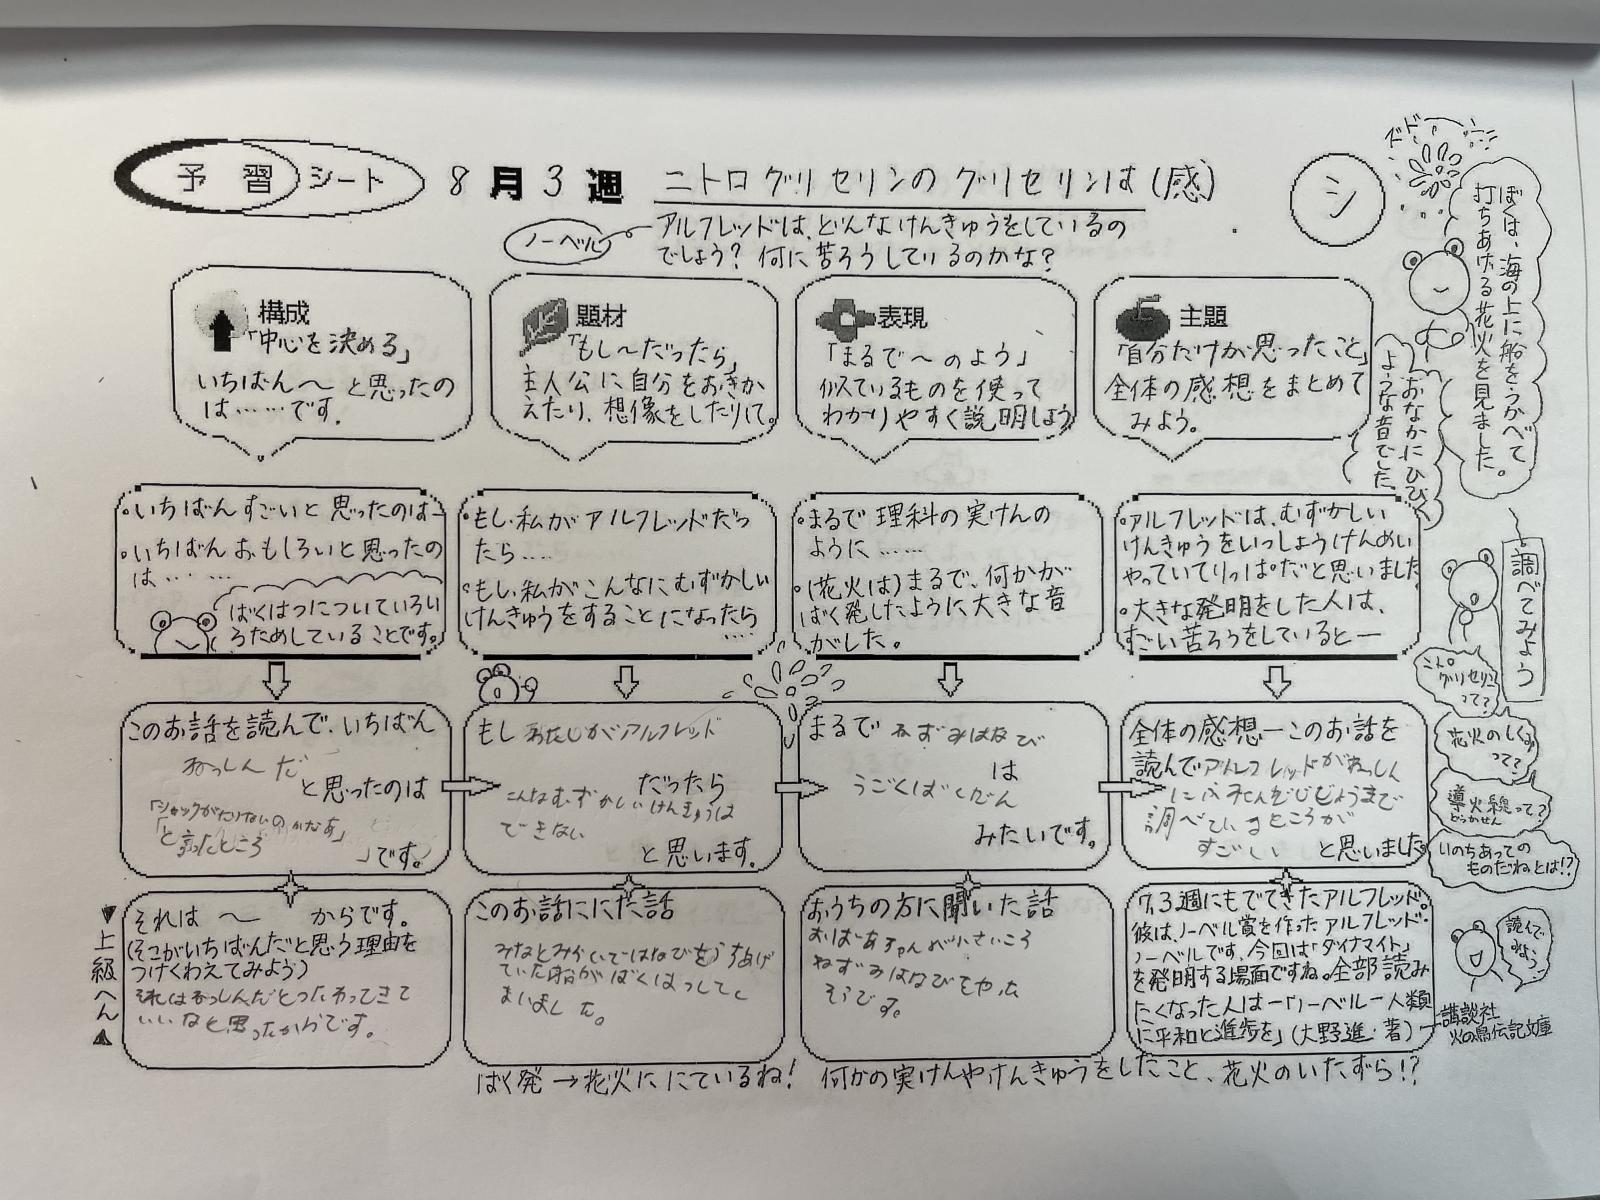 予習シート 8月3週 ニトログリセリンのグリセリンは(感)
シ
ノーベル
アルフレッドは、どんなけんきゅうをしているの
でしょう?何に苦ろうしているのかな?
構成
「中心を決める」
いちばん〜と思ったの
は……です。
題材
「もし〜だったら」
主人公に自分をおきか
えたり、想像をしたりして。
表現
「まるで〜のよう」
似ているものを使って
わかりやすく説明しよう
主題
「自分だけが思ったこと」
全体の感想をまとめて
みよう。
ズドーン
ぼくは、海の上に船をうかべて
打ちあげる花火を見ました。
おなかにひびく
ような音でした。
・いちばんすごいと思ったのは―
・いちばんおもしろいと思ったの
は……
ばくはつについていろい
ろためしていることです。
・もし私がアルフレッドだっ
たら……
・もし私がこんなにむずかしい
けんきゅうをすることになったら
……
・まるで理科の実けんの
ように……
・(花火は)まるで、何かが
ばく発したように大きな音
がした。
・アルフレッドは、むずかしい
けんきゅうをいっしょうけんめい
やっていてりっぱだと思いました
・大きな発明をした人は、
すごい苦ろうをしていると―
調べてみよう
ニトログリセリン
って?
花火のしくみ
って?
導火線って?
どうかせん
いのちあっての
ものだねとは!?
このお話を読んで、いちばん
ねっしんだ
と思ったのは
「ショックがたりないのかなあ」
と言ったところ
」です。
もし わたしがアルフレッド
だったら
こんなむずかしいけんきゅうは
できない
と思います。
まるで ねずみはなび
は
うごくばくだん
みたいです。
全体の感想―このお話を
読んでアルフレッドがねっしん
調べているところが
すごい と思いました。
▼上級へん▲
それは 〜 からです。
(そこがいちばんだと思う理由を
つけくわえてみよう)
それはねっしんだとつたわってきて
いいなと思ったからです。
このお話ににた話
みなとみらいではなびをうちあげ
ていた船がばくはつしてし
まいました。
おうちの方に聞いた話
おばあちゃんが小さいころ
ねずみはなびをやった
そうです。
7.3週にもでてきたアルフレッド。
彼は、ノーベル賞を作ったアルフレッド・
ノーベルです。今回は「ダイナマイト」
を発明する場面ですね。全部読み
たくなった人は―「ノーベル―人類
に平和と進歩を」(大野進・著)
講談社
火の鳥伝記文庫
読んで
みよう
ばく発→花火ににているね! 何かの実けんやけんきゅうをしたこと、花火のいたずら!?